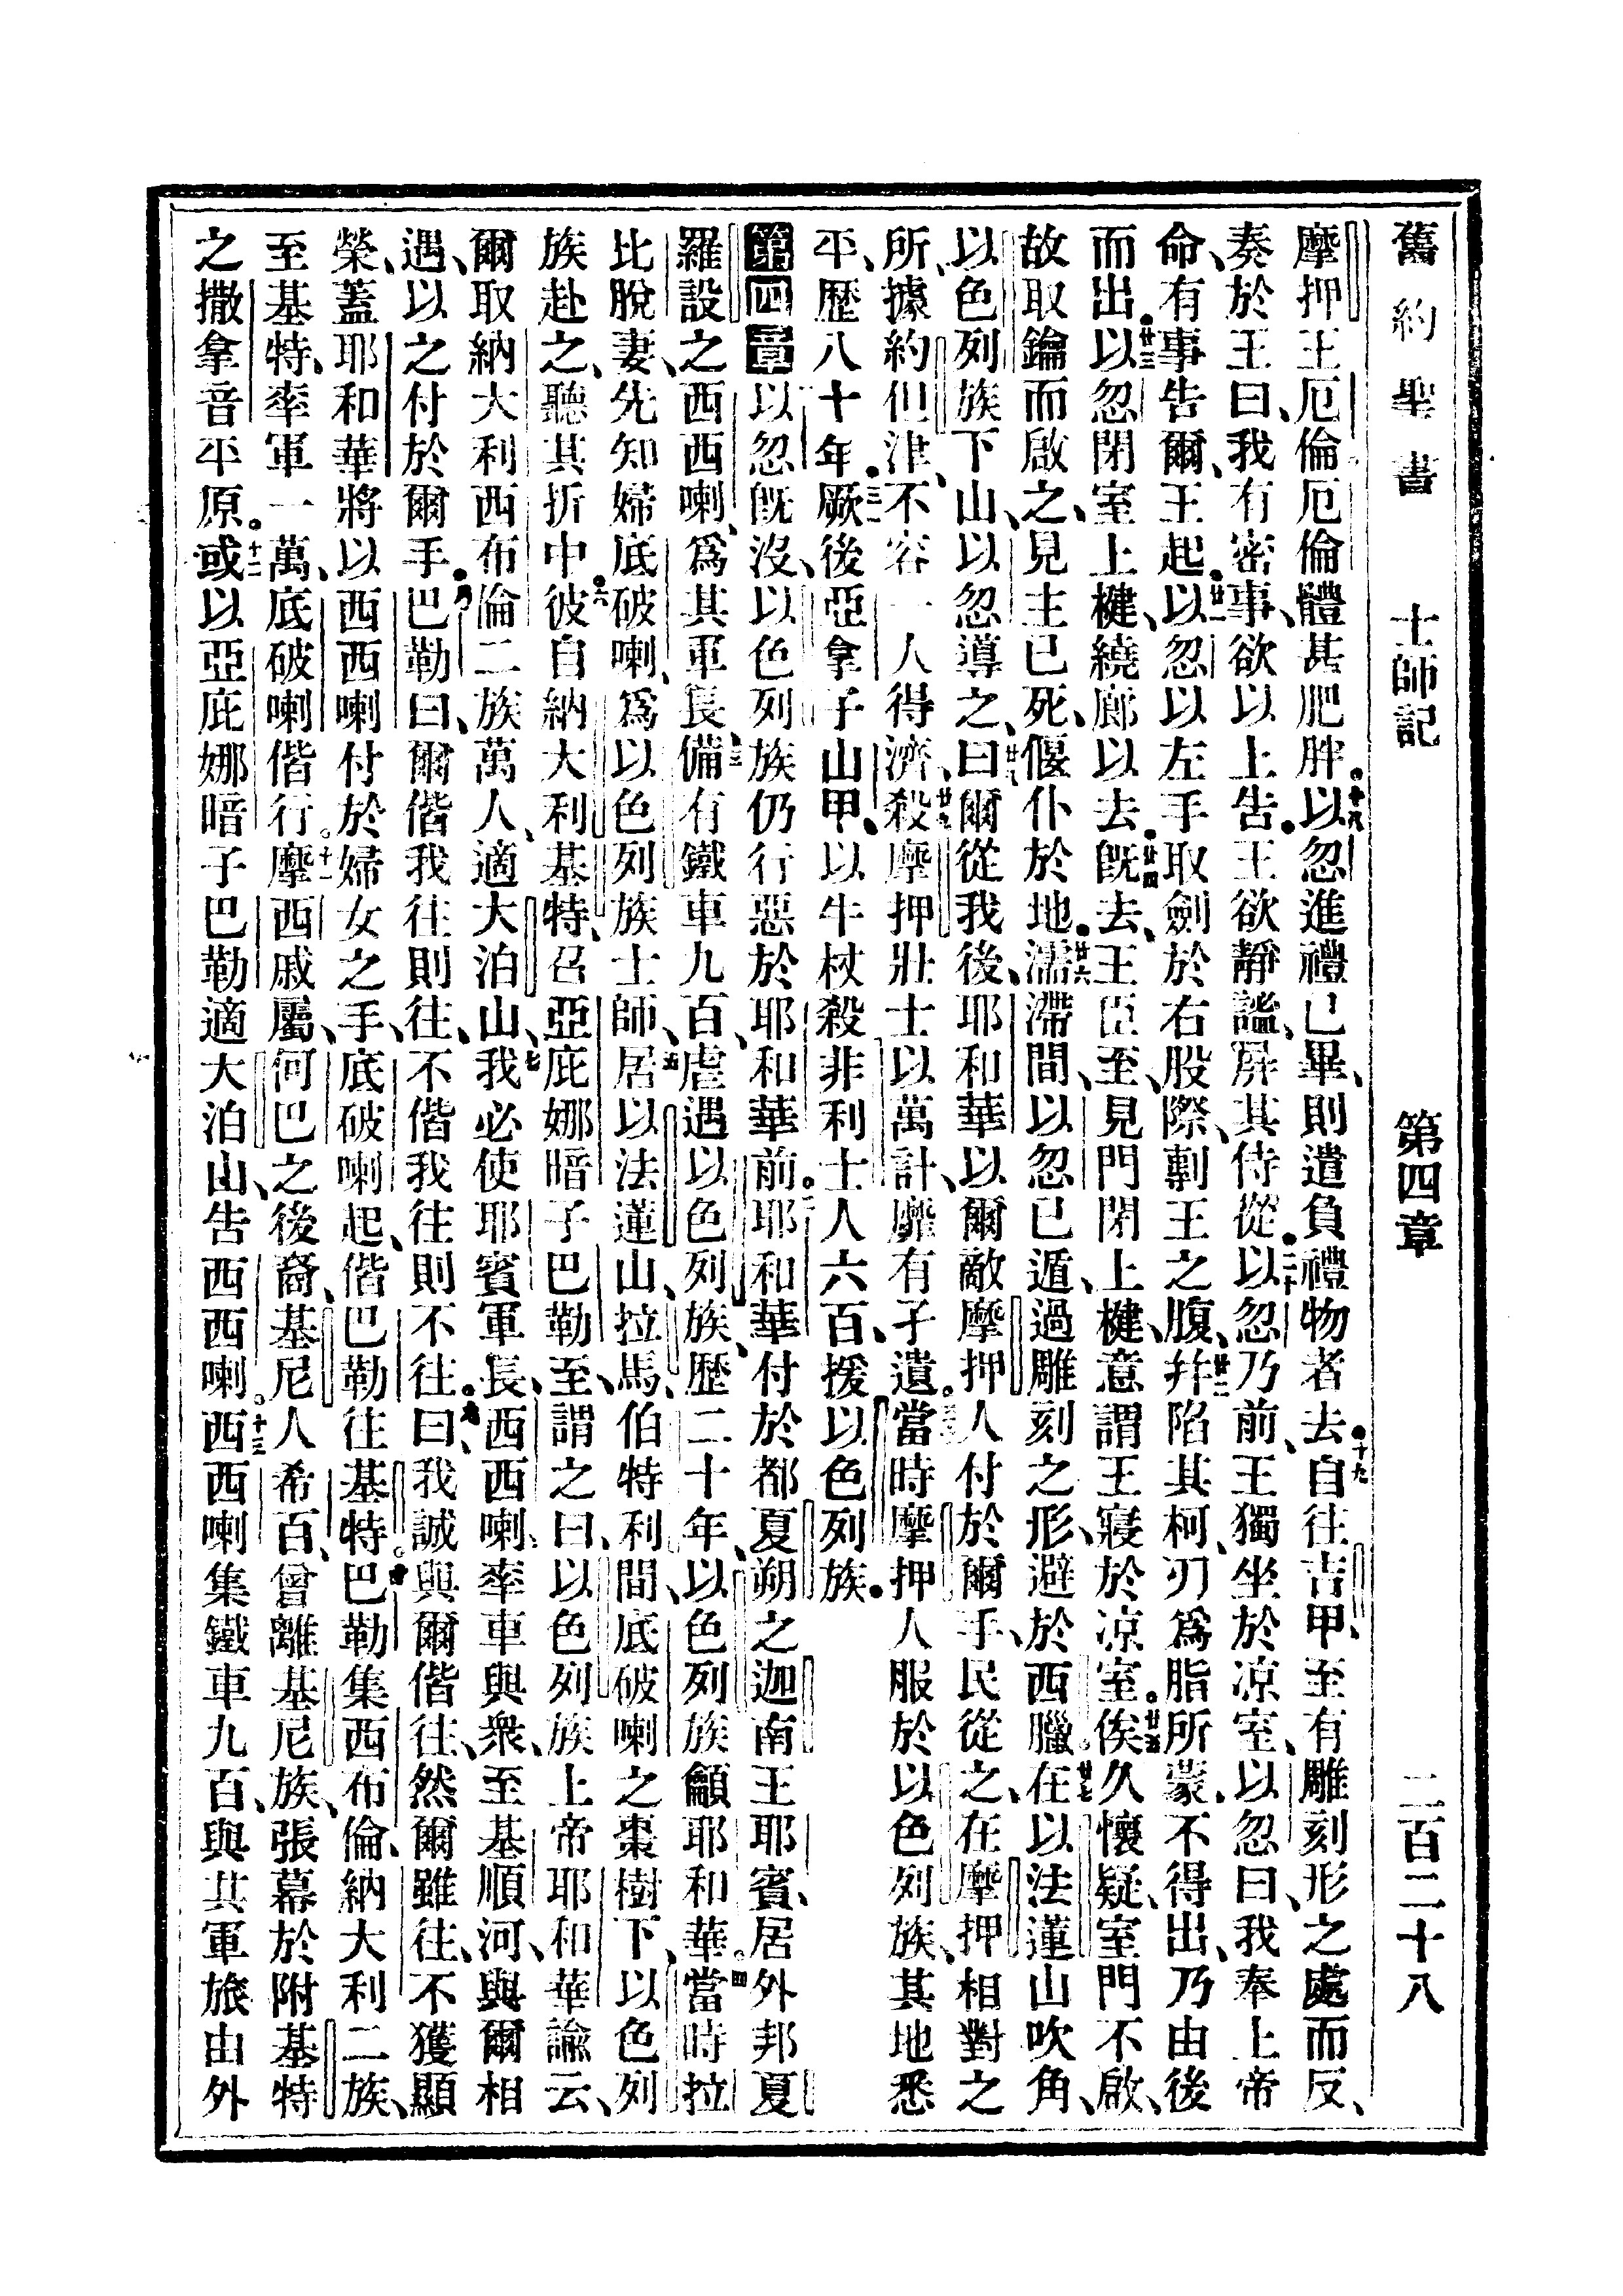 舊約聖書 士師記 第四章 二百二十八
摩押王厄倫厄倫體甚肥胖。十八以忽進禮已畢、則遣負禮物者去。十九自往吉甲、至有雕刻形之處而反、
奏於王曰、我有密事、欲以上告。王欲靜謐、屏其侍從。二十以忽乃前、王獨坐於凉室、以忽曰、我奉上帝
命、有事告爾、王起。廿一以忽以左手取劍於右股際、剚王之腹、廿二幷陷其柯、刃爲脂所蒙、不得出、乃由後
而出。廿三以忽閉室上楗、繞廊以去。廿四旣去、王臣至、見門閉上楗、意謂王寢於凉室。廿五俟久懷疑、室門不啟、
故取鑰而啟之、見主已死、偃仆於地。廿六濡滯間、以忽已遁、過雕刻之形、避於西臘。廿七在以法蓮山吹角、
以色列族下山、以忽導之、廿八曰爾從我後、耶和華以爾敵摩押人付於爾手、民從之、在摩押相對之
所、據約但津、不容一人得濟、廿九殺摩押壯士以萬計、靡有孑遺。三十當時摩押人服於以色列族、其地悉
平、歷八十年。三一厥後亞拿子山甲、以牛杖殺非利士人六百、援以色列族。
第四章以忽旣沒、以色列族仍行惡於耶和華前。二耶和華付於都夏朔之迦南王耶賓、居外邦夏
羅設之西西喇、爲其軍長、三備有鐵車九百、虐遇以色列族、歷二十年、以色列族龥耶和華。四當時拉
比脫妻、先知婦底破喇、爲以色列族士師、五居以法蓮山、拉馬、伯特利間、底破喇之棗樹下、以色列
族赴之、聽其折中。六彼自納大利基特、召亞庇娜暗子巴勒至、謂之曰、以色列族上帝耶和華諭云、
爾取納大利西布倫二族萬人、適大泊山、七我必使耶賓軍長、西西喇、率車與衆、至基順河、與爾相
遇、以之付於爾手。八巴勒曰、爾偕我往則往、不偕我往則不往。九曰、我誠與爾偕往、然爾雖往、不獲顯
榮、蓋耶和華將以西西喇付於婦女之手、底破喇起、偕巴勒往基特。十巴勒集西布倫、納大利二族、
至基特、率軍一萬、底破喇偕行。十一摩西戚屬、何巴之後裔、基尼人希百、曾離基尼族、張幕於附基特
之撒拿音平原。十二或以亞庇娜暗子巴勒適大泊山、告西西喇。十三西西喇集鐵車九百、與其軍旅、由外